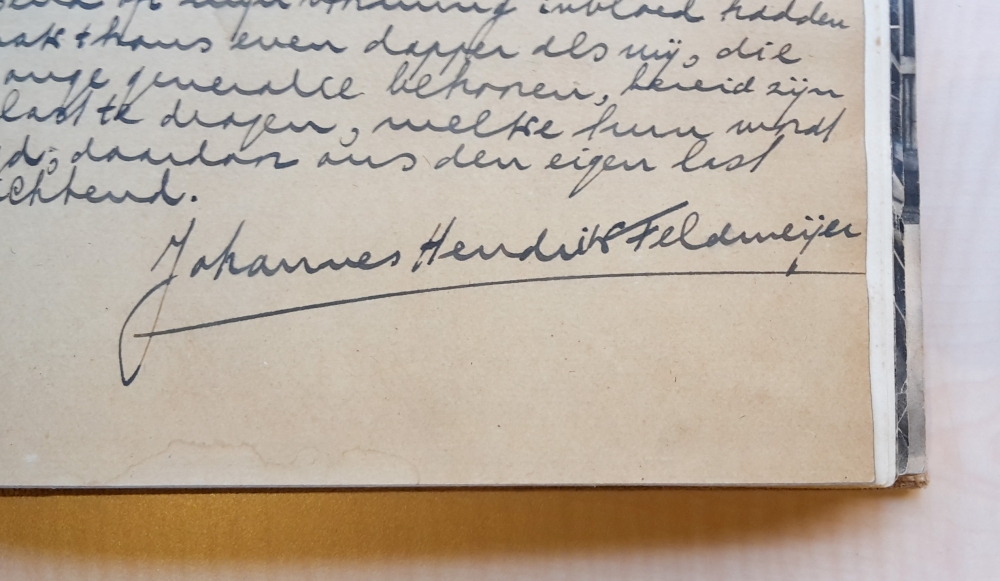 of eigen invloed hadden
thans even dapper als wij, die
jonge generatie behooren, bereid zijn
last te dragen, welke hun wordt
daardoor ons den eigen last
ichtend.
Johannes Hendrik Feldmeijer